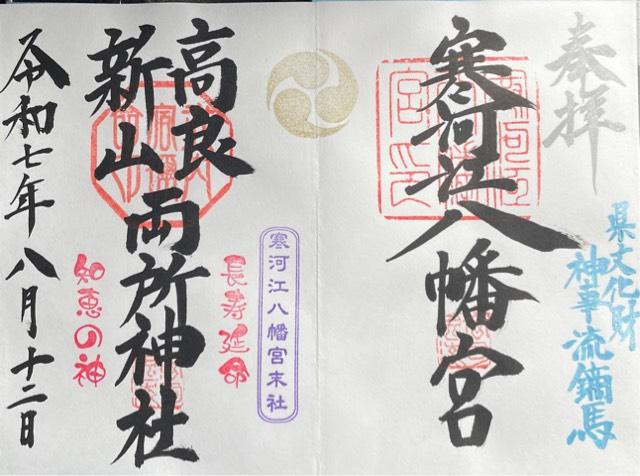 奉拝
県文化財
神事流鏑馬
寒河江八幡宮
寒河江八幡宮末社
長寿延命
高良
新山
両所神社
知恵の神
令和七年八月十二日